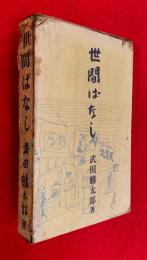 世間ばなし
武田麟太郎著
世間ばなし
武田麟太郎著